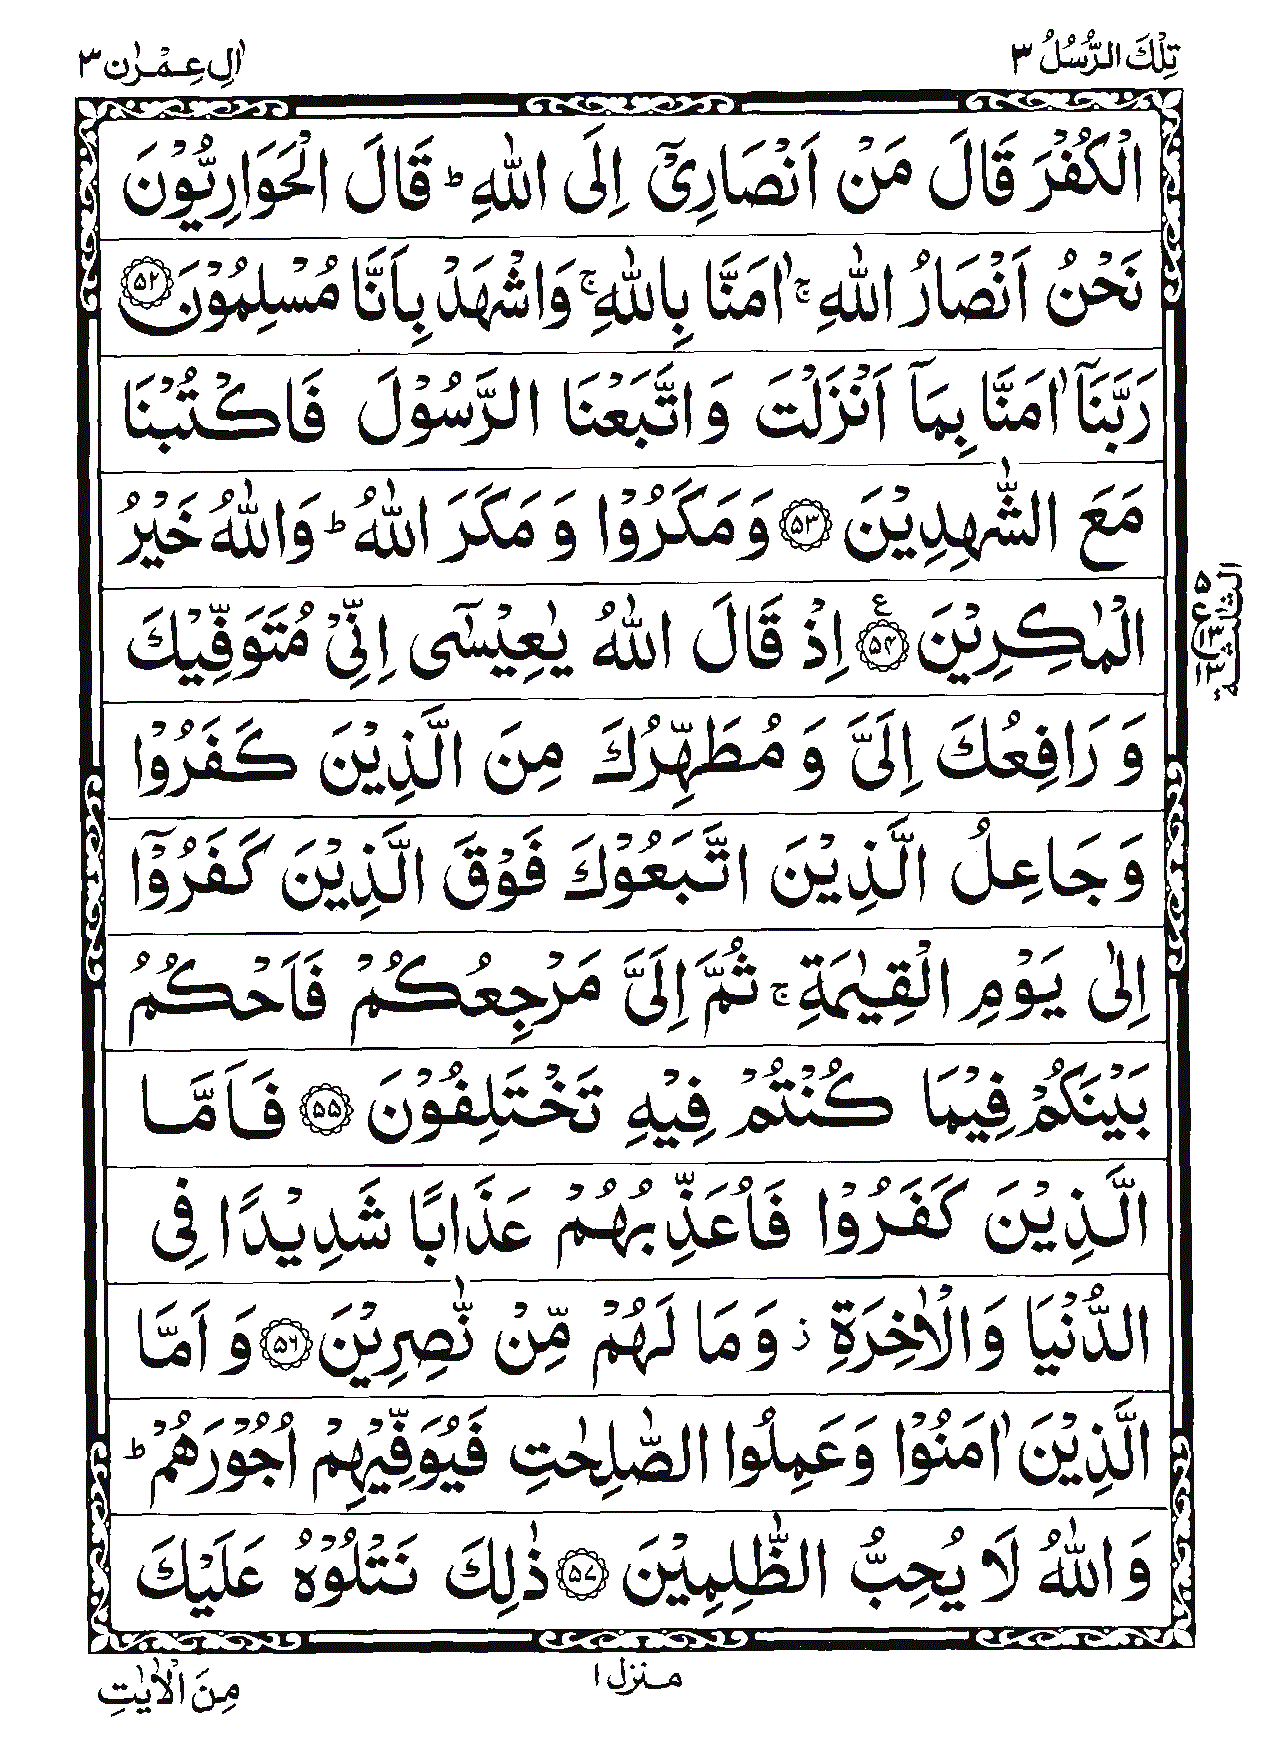 تِلْكَ الرُّسُلُ ٣
اٰلِ عِمْرٰن ٣
الْكُفْرَ قَالَ مَنْ اَنْصَارِیْۤ اِلَی اللّٰهِ ؕ قَالَ الْحَوَارِیُّوْنَ
نَحْنُ اَنْصَارُ اللّٰهِ ۚ اٰمَنَّا بِاللّٰهِ ۚ وَاشْهَدْ بِاَنَّا مُسْلِمُوْنَ ﴿۵۲﴾
رَبَّنَاۤ اٰمَنَّا بِمَاۤ اَنْزَلْتَ وَاتَّبَعْنَا الرَّسُوْلَ فَاكْتُبْنَا
مَعَ الشّٰهِدِیْنَ ﴿۵۳﴾ وَمَكَرُوْا وَ مَكَرَ اللّٰهُ ؕ وَاللّٰهُ خَیْرُ
الْمٰكِرِیْنَ ﴿۵۴﴾ ع اِذْ قَالَ اللّٰهُ یٰعِیْسٰۤی اِنِّیْ مُتَوَفِّیْكَ
وَ رَافِعُكَ اِلَیَّ وَ مُطَهِّرُكَ مِنَ الَّذِیْنَ كَفَرُوْا
وَ جَاعِلُ الَّذِیْنَ اتَّبَعُوْكَ فَوْقَ الَّذِیْنَ كَفَرُوْۤا
اِلٰی یَوْمِ الْقِیٰمَةِ ۚ ثُمَّ اِلَیَّ مَرْجِعُكُمْ فَاَحْكُمُ
بَیْنَكُمْ فِیْمَا كُنْتُمْ فِیْهِ تَخْتَلِفُوْنَ ﴿۵۵﴾ فَاَمَّا
الَّذِیْنَ كَفَرُوْا فَاُعَذِّبُهُمْ عَذَابًا شَدِیْدًا فِی
الدُّنْیَا وَالْاٰخِرَةِ ؗ وَمَا لَهُمْ مِّنْ نّٰصِرِیْنَ ﴿۵۶﴾ وَ اَمَّا
الَّذِیْنَ اٰمَنُوْا وَعَمِلُوا الصّٰلِحٰتِ فَیُوَفِّیْهِمْ اُجُوْرَهُمْ ؕ
وَاللّٰهُ لَا یُحِبُّ الظّٰلِمِیْنَ ﴿۵۷﴾ ذٰلِكَ نَتْلُوْهُ عَلَیْكَ
۵
ع
۱۳
۱۳
الثلٰثة
منزل ۱
مِنَ الْاٰیٰتِ